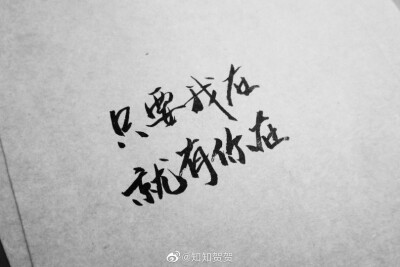 只要我在
就有你在
@知知贺贺